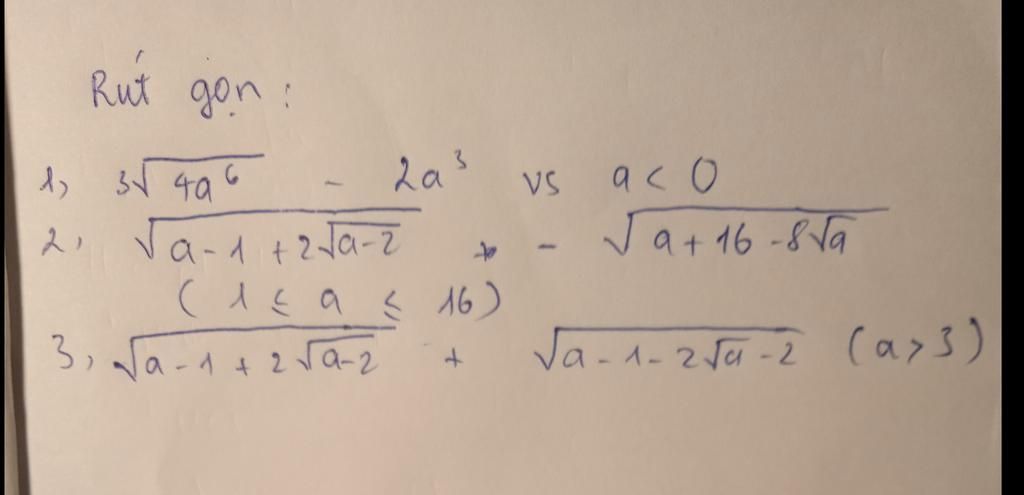 Rút gọn :
1, 3√4a⁶ - 2a³ vs a < 0
2, √a-1+2√a-2 - √a+16-8√a
( 1 ≤ a ≤ 16)
3, √a-1+2√a-2 + √a-1-2√a-2 (a>3)